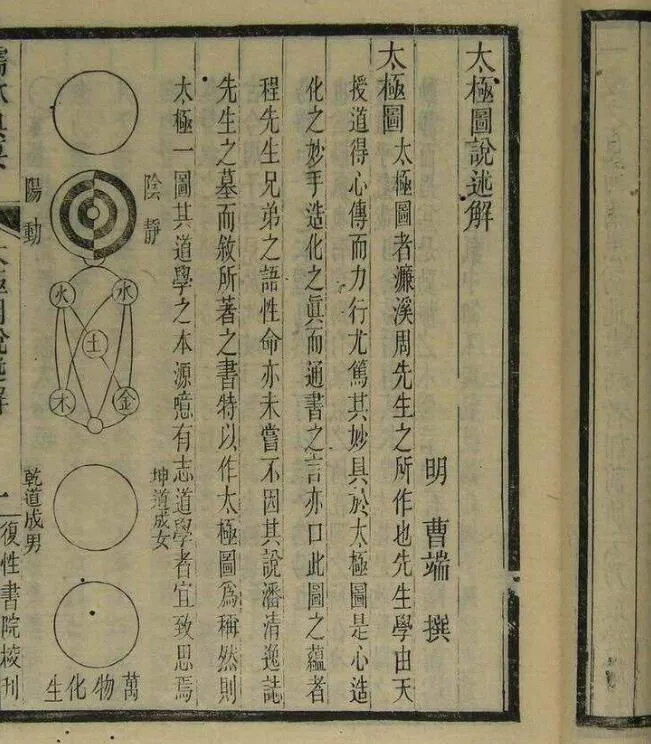 太極圖說述解
明 曹端 撰
太極圖 太極圖者濂溪周先生之所作也先生學由天
授道得心傳而力行尤篤其妙具於太極圖是心造
化之妙手造化之眞而通書之言亦口此圖之蘊者
程先生兄弟之語性命亦未嘗不因其說潘清逸誌
先生之墓而敘所著之書特以作太極圖爲稱然則
太極一圖其道學之本源噫有志道學者宜致思焉
陰靜
陽動
水
火
土
金
木
坤道成女
乾道成男
萬物化生
太極圖說述解
復性書院校刊